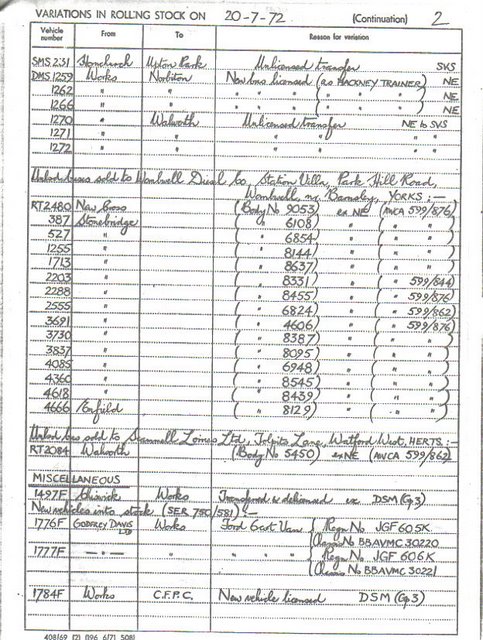 VARIATIONS IN ROLLING STOCK ON 20-7-72 (Continuation) 2
Vehicle number From To Reason for variation
SMS 231 Stonebridge Upton Park Unlicensed transfer SVS
DMS 1259 Works Norbiton New bus licensed (as HACKNEY TRAINER) NE
1262 " " " " " " NE
1266 " " " " " " NE
1270 " Walworth Unlicensed transfer NE to SVS
1271 " " " " "
1272 " " " " "
Unlicd buses sold to Wombwell Diesel Co, Station Villa, Park Hill Road,
Wombwell, nr. Barnsley, YORKS :—
RT2480 New Cross (Body No 9053) ex NE (AVCA 599/876)
387 Stonebridge ( " 6108) " ( " " )
527 " ( " 6854) " ( " " )
1255 " ( " 8144) " ( " " )
1713 " ( " 8637) " ( " " )
2203 " ( " 8331) " ( " 599/844)
2288 " ( " 8455) " ( " 599/876)
2555 " ( " 6824) " ( " 599/862)
3691 " ( " 4606) " ( " 599/876)
3730 " ( " 8387) " ( " " )
3837 " ( " 8095) " ( " " )
4085 " ( " 6948) " ( " " )
4360 " ( " 8545) " ( " " )
4618 " ( " 8439) " ( " " )
4666 Enfield ( " 8129) " ( " " )
Unlicd bus sold to Scammell Lorries Ltd, Tolpits Lane, Watford West, HERTS :—
RT2084 Walworth (Body No 5450) ex NE (AVCA 599/862)
MISCELLANEOUS
1497F Chiswick Works Transferred & delicensed ex DSM (Gp3)
New vehicles into stock (SER 780/581) :—
1776F GODFREY DAVIS LTD Works Ford Escort Van { Regn No JGF 605K
{ Chassis No BBAVMC 30220
1777F —"— " " " " { Regn No JGF 606K
{ Chassis No BBAVMC 30221
1784F Works C.F.P.C. New vehicle licensed DSM (Gp3)
408/69 (2) (196 6/71 508)